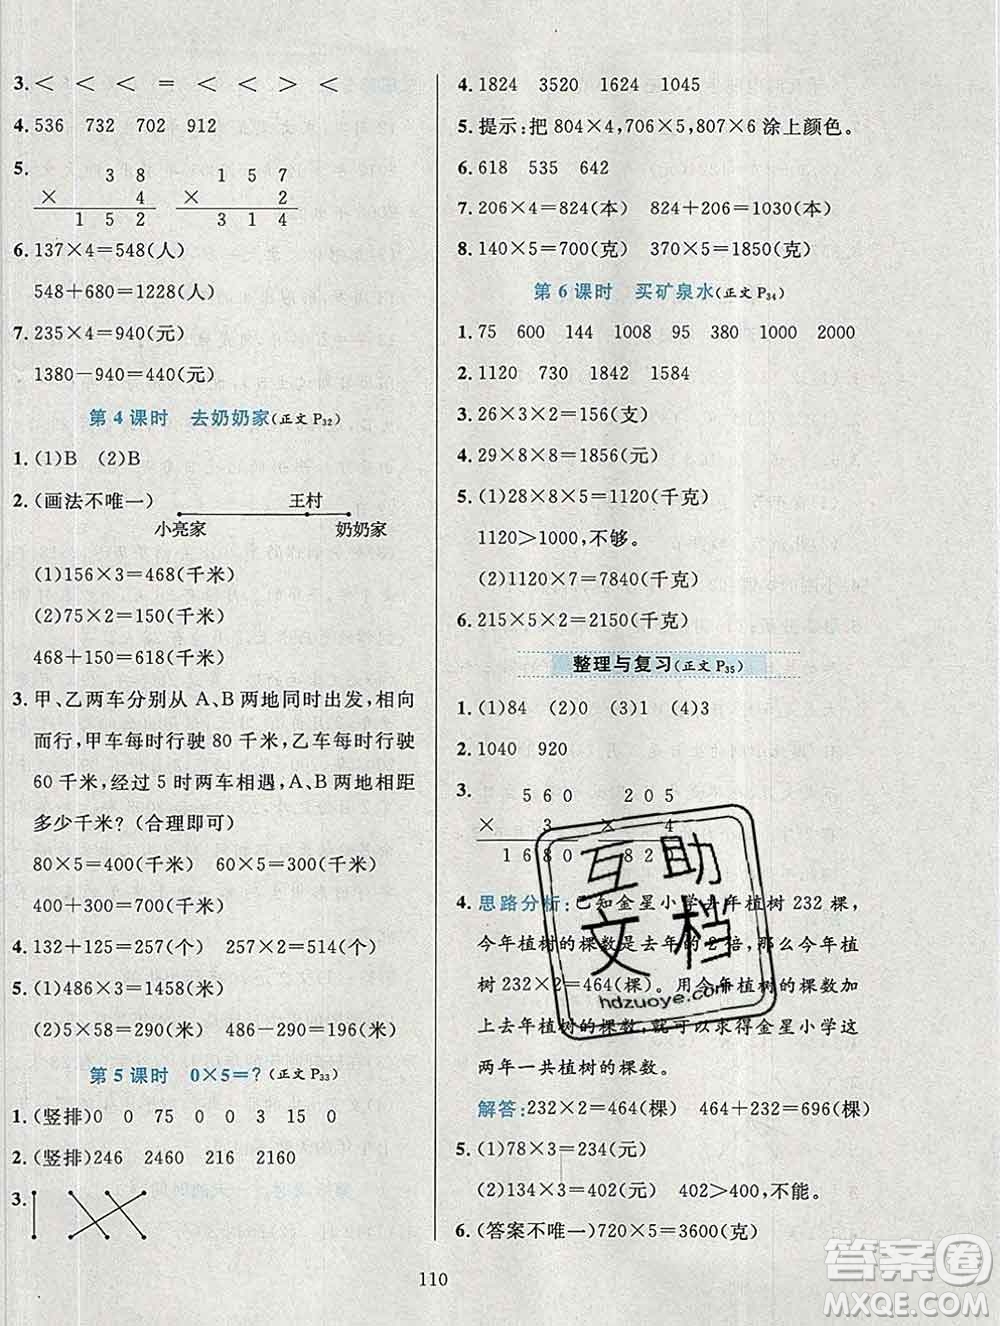 3. ＜ ＜ ＜ ＝ ＜ ＜ ＞ ＜
4. 536 732 702 912
5.
3 8
× 4
1 5 2
1 5 7
× 2
3 1 4
6. 137×4=548(人)
548+680=1228(人)
7. 235×4=940(元)
1380-940=440(元)
第 4 课时 去奶奶家(正文 P32)
1. (1)B (2)B
2. (画法不唯一)
王村
小亮家 奶奶家
(1)156×3=468(千米)
(2)75×2=150(千米)
468+150=618(千米)
3. 甲、乙两车分别从 A、B 两地同时出发,相向
而行,甲车每时行驶 80 千米,乙车每时行驶
60 千米,经过 5 时两车相遇,A、B 两地相距
多少千米?(合理即可)
80×5=400(千米) 60×5=300(千米)
400+300=700(千米)
4. 132+125=257(个) 257×2=514(个)
5. (1)486×3=1458(米)
(2)5×58=290(米) 486-290=196(米)
第 5 课时 0×5=?(正文 P33)
1. (竖排)0 0 75 0 0 3 0
2. (竖排)246 2460 216 2160
3.
4. 1824 3520 1624 1045
5. 提示:把 804×4,706×5,807×6 涂上颜色。
6. 618 535 642
7. 206×4=824(本) 824+206=1030(本)
8. 140×5=700(克) 370×5=1850(克)
第 6 课时 买矿泉水(正文 P34)
1. 75 600 144 1008 95 380 1000 2000
2. 1120 730 1842 1584
3. 26×3×2=156(支)
4. 29×8×8=1856(元)
5. (1)28×8×5=1120(千克)
1120>1000,不够。
(2)1120×7=7840(千克)
6. 215×5×2=2150(千克)
整理与复习(正文 P35)
1. (1)84 (2)0 (3)1 (4)3
2. 1040 920
3.
5 6 0
× 3
1 6 8 0
2 0 5
× 4
8 2
4. 思路分析:已知金星小学去年植树 232 棵,
今年植树的棵数是去年的 2 倍,那么今年植
树 232×2=464(棵)。用今年植树的棵数加
上去年植树的棵数,就可以求得金星小学这
两年一共植树的棵数。
解答:232×2=464(棵) 464+232=696(棵)
5. (1)78×3=234(元)
(2)134×3=402(元) 402>400,不能。
6. (答案不唯一)720×5=3600(克)
110
互助
文档
hdzuoye.com
答案圈
MXQE.COM